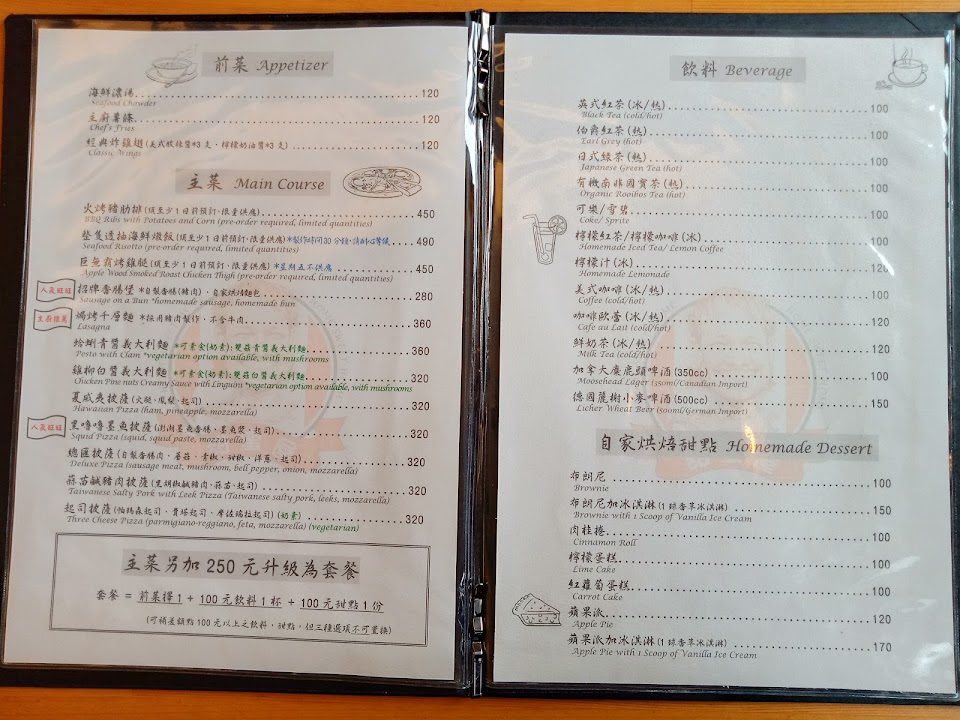 前菜 Appetizer
海鮮濃湯 120
Seafood Chowder
主廚薯條 120
Chef's Fries
經典炸雞翅(美式放辣醬*3 支、檸檬奶油醬*3 支) 120
Classic Wings
主菜 Main Course
火烤豬肋排(須至少1日前預訂,限量供應) 450
BBQ Ribs with Potatoes and Corn (pre-order required, limited quantities)
整隻透抽海鮮燉飯(須至少1日前預訂,限量供應)*製作時間30分鐘,請耐心等候 490
Seafood Risotto (pre-order required, limited quantities)
巨無霸烤雞腿(須至少1日前預訂、限量供應) *星期五不供應 450
Apple Wood Smoked Roast Chicken Thigh (pre-order required, limited quantities)
人氣旺旺
招牌香腸堡 *自製香腸(豬肉)、自家烘焙麵包 280
Sausage on a Bun *homemade sausage, homemade bun
主廚推薦
焗烤千層麵 *採用豬肉製作、不含牛肉 360
Lasagna
蛤蜊青醬義大利麵 *可素食(奶素):雙菇青醬義大利麵 360
Pesto with Clam *vegetarian option available, with mushrooms
雞柳白醬義大利麵 *可素食(奶素):雙菇白醬義大利麵 320
Chicken Pine nuts Creamy Sauce with Linguini *vegetarian option available, with mushrooms
夏威夷披薩(火腿、鳳梨、起司) 320
Hawaiian Pizza (ham, pineapple, mozzarella)
人氣旺旺
黑嚕嚕墨魚披薩(澎湖墨魚香腸、墨魚醬、起司) 320
Squid Pizza (squid, squid paste, mozzarella)
總匯披薩(自製香腸肉、蘑菇、青椒、甜椒、洋蔥、起司) 320
Deluxe Pizza (sausage meat, mushroom, bell pepper, onion, mozzarella)
蒜苗鹹豬肉披薩(黑胡椒鹹豬肉、蒜苗、起司) 320
Taiwanese Salty Pork with Leek Pizza (Taiwanese salty pork, leeks, mozzarella)
起司披薩(帕瑪森起司、費塔起司、摩佐瑞拉起司)(奶素) 320
Three Cheese Pizza (parmigiano-reggiano, feta, mozzarella) (vegetarian)
主菜另加 250 元升級為套餐
套餐 = 前菜擇1 + 100元飲料1杯 + 100元甜點1份
(可補差額點100元以上之飲料、甜點,但三種選項不可置換)
飲料 Beverage
英式紅茶(冰/熱) 100
Black Tea (cold/hot)
伯爵紅茶(熱) 100
Earl Grey (hot)
日式綠茶(熱) 100
Japanese Green Tea (hot)
有機南非國寶茶(熱) 100
Organic Rooibos Tea (hot)
可樂/雪碧 100
Coke/ Sprite
檸檬紅茶/檸檬咖啡(冰) 100
Homemade Iced Tea/ Lemon Coffee
檸檬汁(冰) 120
Homemade Lemonade
美式咖啡(冰/熱) 100
Coffee (cold/hot)
咖啡歐蕾(冰/熱) 120
Cafe au Lait (cold/hot)
鮮奶茶(冰/熱) 120
Milk Tea (cold/hot)
加拿大麋鹿頭啤酒(350cc) 100
Moosehead Lager (350ml/Canadian Import)
德國麗樹小麥啤酒(500cc) 150
Licher Wheat Beer (500ml/German Import)
自家烘焙甜點 Homemade Dessert
布朗尼 100
Brownie
布朗尼加冰淇淋(1球香草冰淇淋) 150
Brownie with 1 Scoop of Vanilla Ice Cream
肉桂捲 100
Cinnamon Roll
檸檬蛋糕 100
Lime Cake
紅蘿蔔蛋糕 100
Carrot Cake
蘋果派 120
Apple Pie
蘋果派加冰淇淋(1球香草冰淇淋) 170
Apple Pie with 1 Scoop of Vanilla Ice Cream